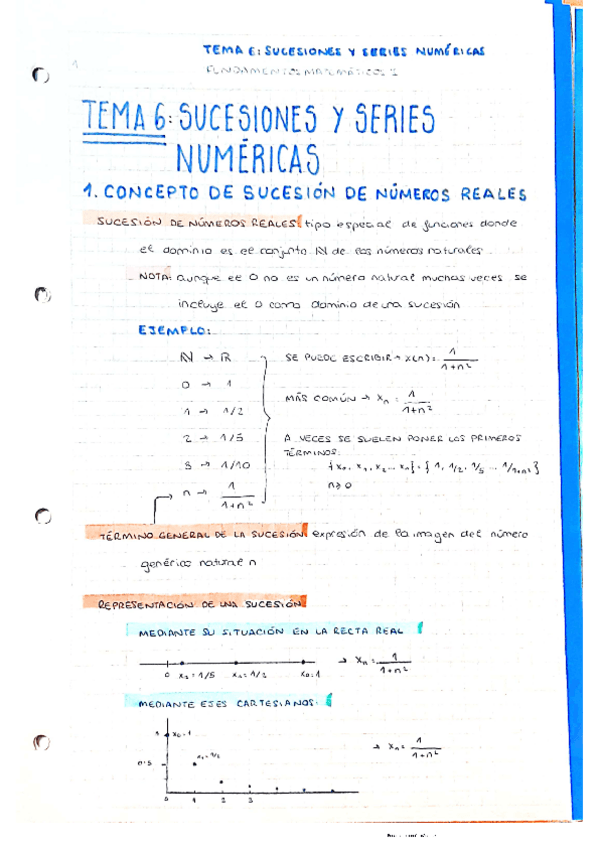 TEMA 6: SUCESIONES Y SERIES NUMÉRICAS
FUNDAMENTOS MATEMÁTICOS 1
1
TEMA 6: SUCESIONES Y SERIES
NUMÉRICAS
1. CONCEPTO DE SUCESIÓN DE NÚMEROS REALES
SUCESIÓN DE NÚMEROS REALES: tipo especial de funciones donde
el dominio es el conjunto ℕ de los números naturales.
NOTA: aunque el 0 no es un número natural muchas veces se
incluye el 0 como dominio de una sucesión
EJEMPLO:
ℕ → ℝ
0 → 1
1 → 1/2
2 → 1/5
3 → 1/10
n → 1/(1+n²)
SE PUEDE ESCRIBIR → x(n) = 1/(1+n²)
MÁS COMÚN → xₙ = 1/(1+n²)
A VECES SE SUELEN PONER LOS PRIMEROS
TÉRMINOS:
{x₀, x₁, x₂ ... xₙ} = {1, 1/2, 1/5 ... 1/1+n²}
n≥0
TÉRMINO GENERAL DE LA SUCESIÓN: expresión de la imagen del número
genérico natural n
REPRESENTACIÓN DE UNA SUCESIÓN:
MEDIANTE SU SITUACIÓN EN LA RECTA REAL
0 x₂=1/5 x₁=1/2 x₀=1 → xₙ = 1/(1+n²)
MEDIANTE EJES CARTESIANOS:
1 x₀=1
x₁=1/2
0.5
→ xₙ = 1/(1+n²)
0 1 2 3